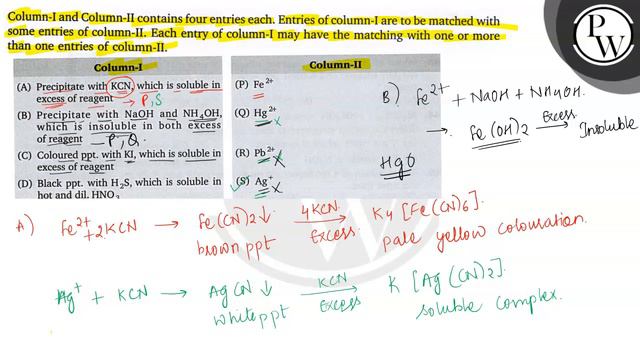 Column-I and Column-II contains four entries each. Entries of column-I are to be matched with
some entries of column-II. Each entry of column-I may have the matching with one or more
than one entries of column-II.
PW
Column-I
Column-II
(A) Precipitate with KCN, which is soluble in
excess of reagent → P, S
(P) Fe²⁺
(B) Precipitate with NaOH and NH₄OH,
which is insoluble in both excess
of reagent — P, Q.
(Q) Hg²⁺ x
(C) Coloured ppt. with KI, which is soluble in
excess of reagent
(R) Pb²⁺ x
(D) Black ppt. with H₂S, which is soluble in
hot and dil. HNO₃
(S) Ag⁺ x
B) Fe²⁺ + NaOH + NH₄OH.
→ Fe(OH)₂ Excess→ Insoluble
HgO
A) Fe²⁺ + 2KCN → Fe(CN)₂↓ 4KCN→ Excess K₄[Fe(CN)₆].
brown ppt pale yellow colouration.
Ag⁺ + KCN → AgCN↓ KCN→ Excess K[Ag(CN)₂].
white ppt soluble complex.